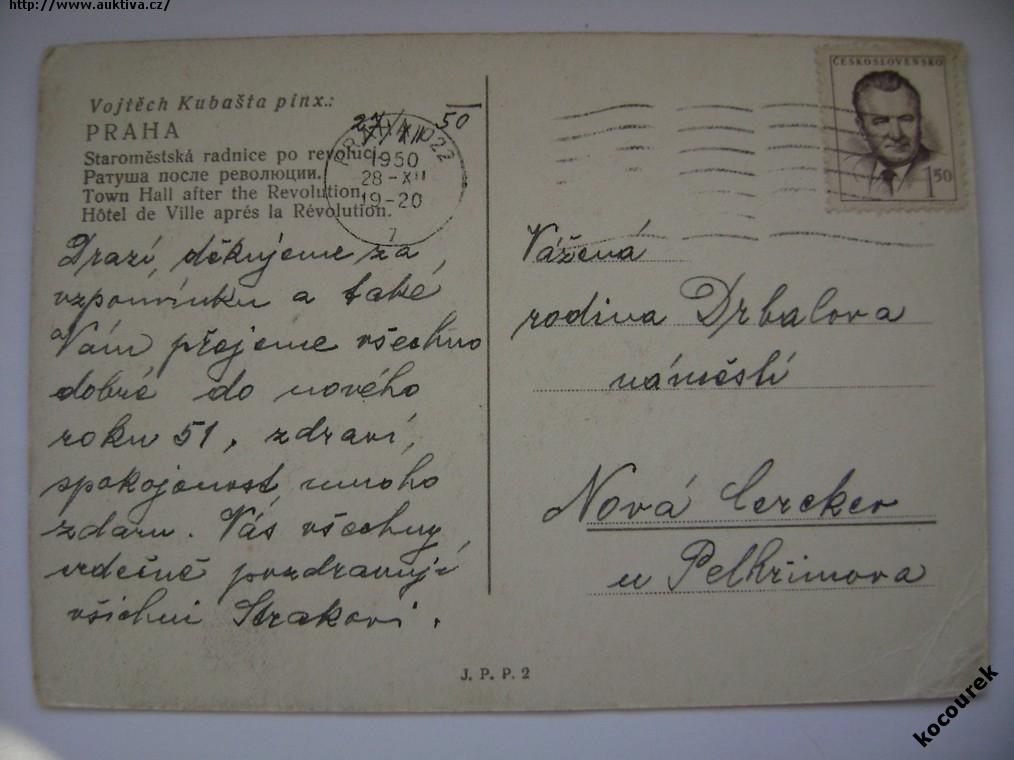 http://www.auktiva.cz/
Vojtěch Kubašta pinx.:
PRAHA
Staroměstská radnice po revoluci.
Ратуша после революции.
Town Hall after the Revolution.
Hôtel de Ville aprés la Révolution.
27/XII 50
PRAHA 022
1950
28-XII
19-20
7
ČESKOSLOVENSKO
150
Drazí, děkujeme za
vzpomínku a také
Vám přejeme všechno
dobré do nového
roku 51, zdraví,
spokojenost, mnoho
zdaru. Vás všechny
srdečně pozdravují
všichni Strakovi.
Vážená
rodina Drbalova
náměstí
Nová Cerekev
u Pelhřimova
J. P. P. 2
kocourek